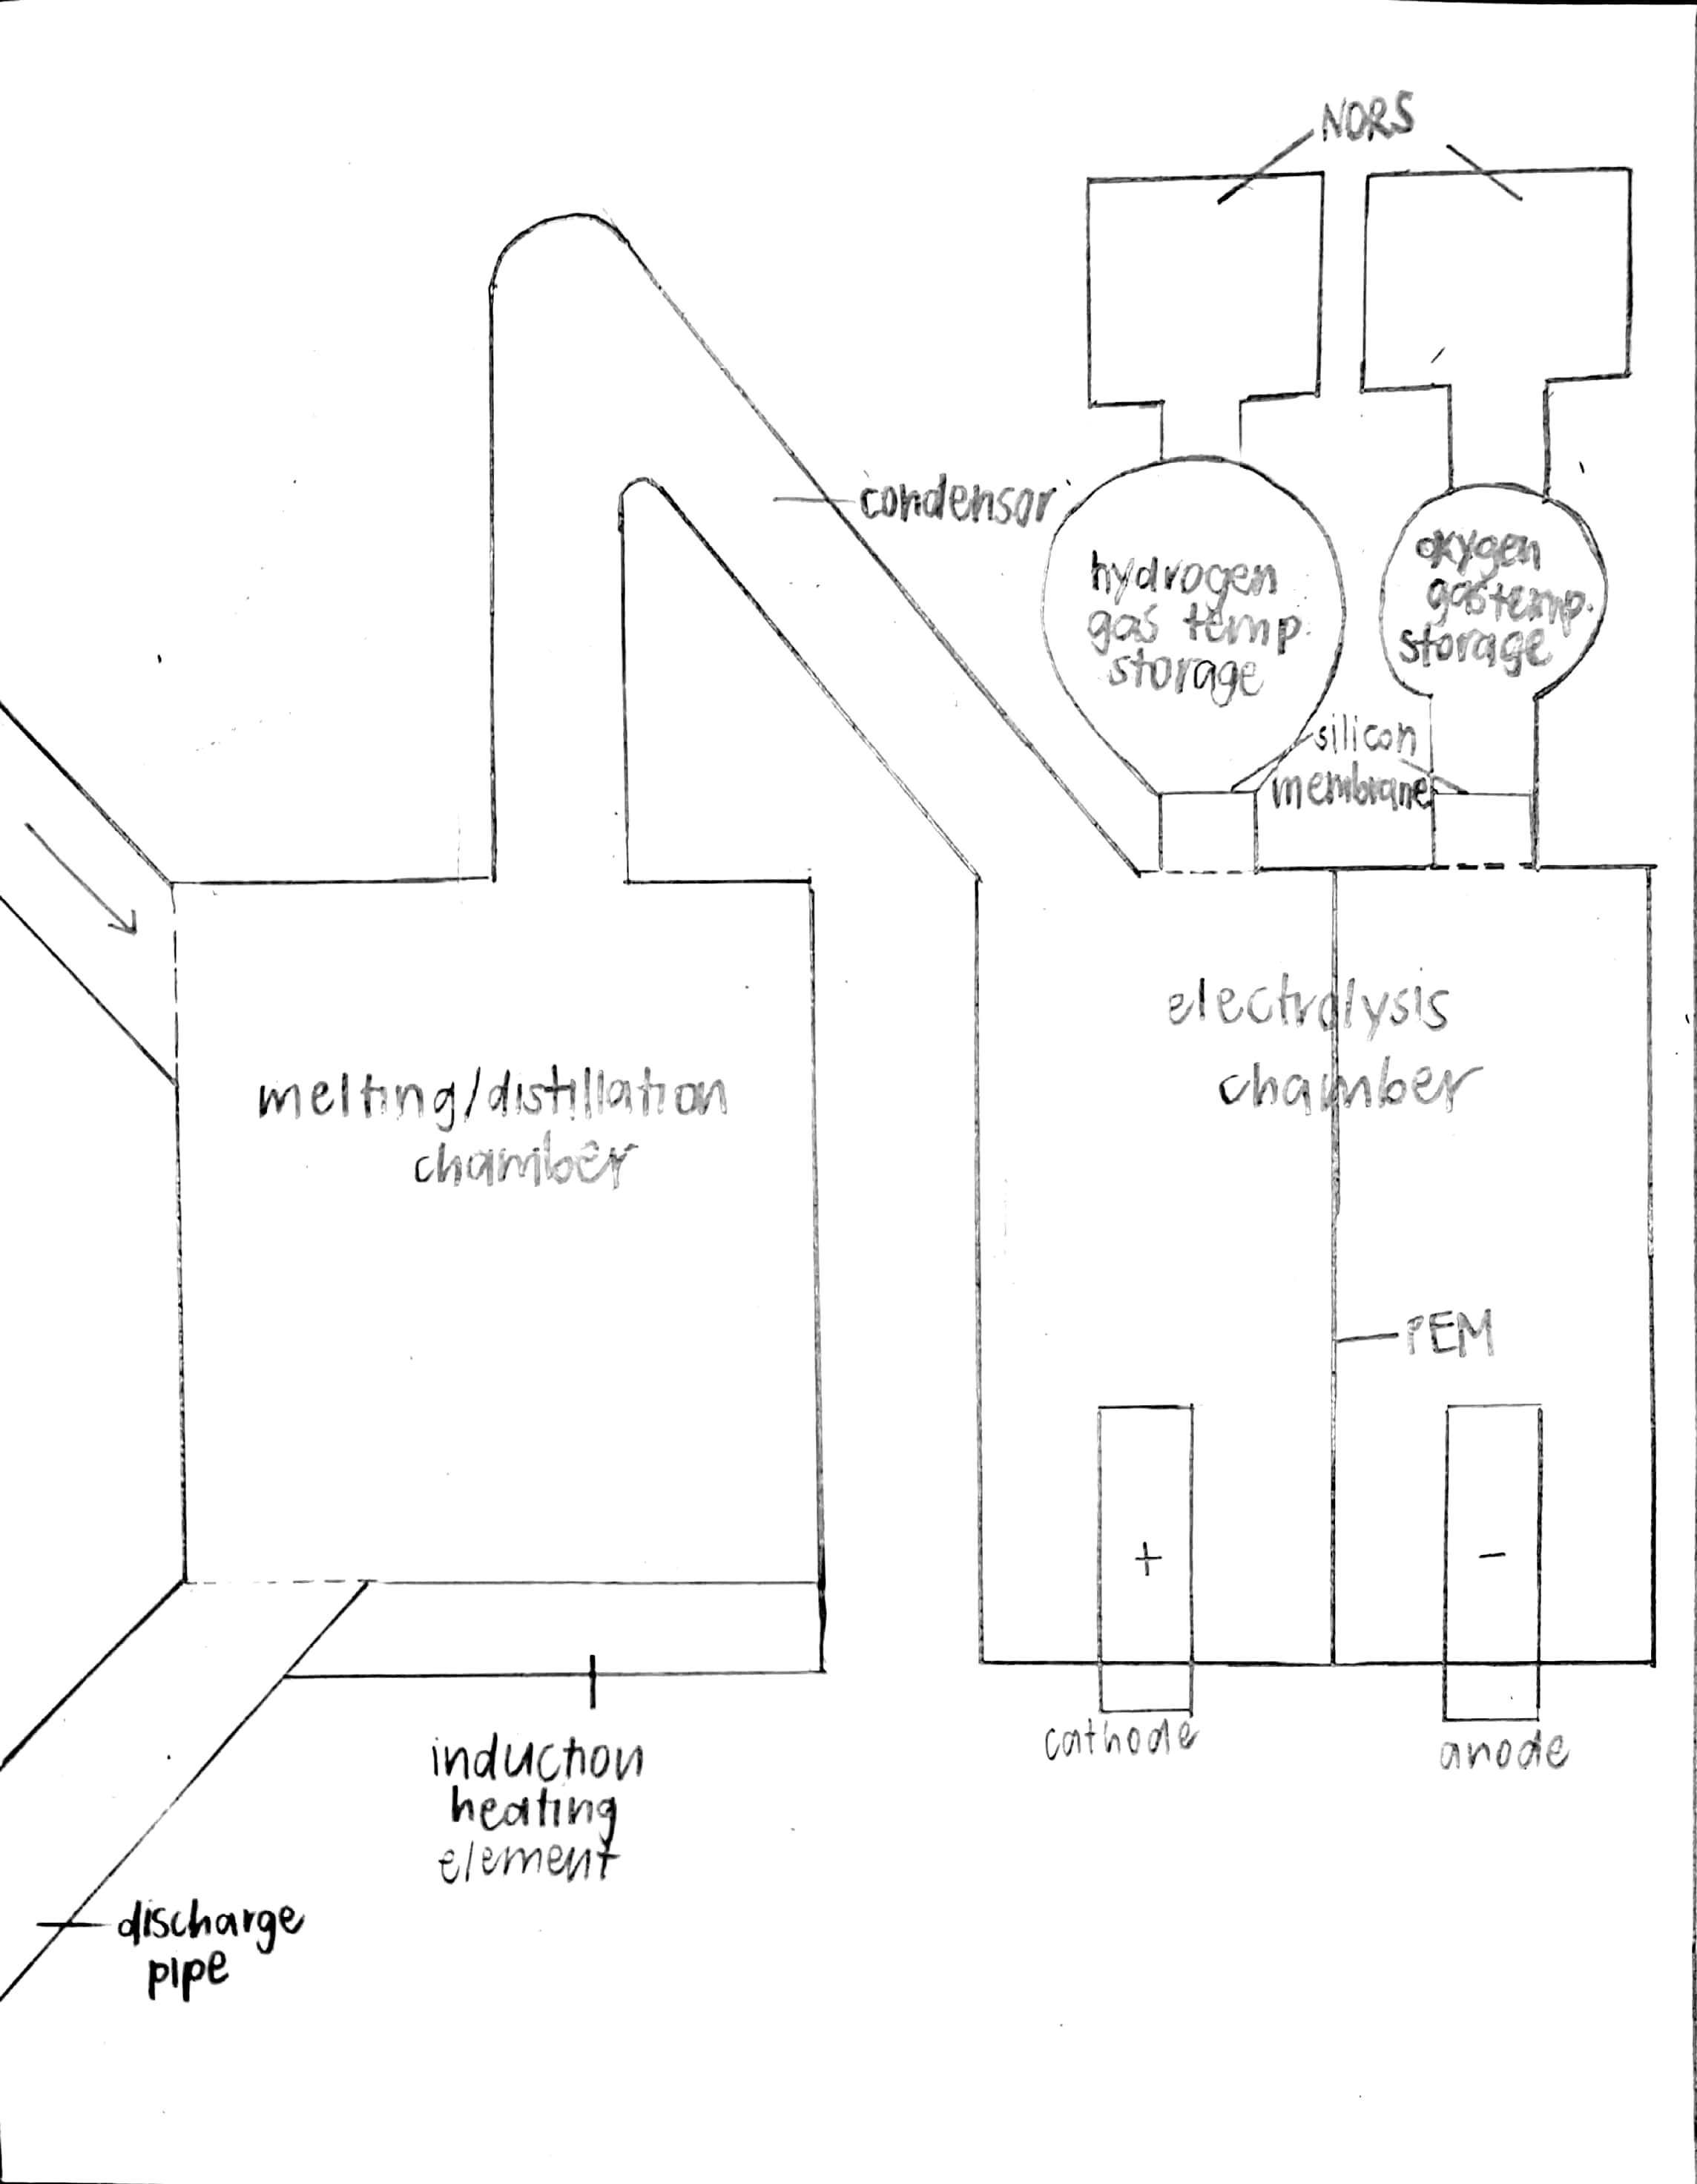 NORS
condensor
hydrogen
gas temp.
storage
oxygen
gas temp.
storage
silicon
membrane
electrolysis
chamber
melting/distillation
chamber
PEM
+
-
cathode
anode
induction
heating
element
discharge
pipe